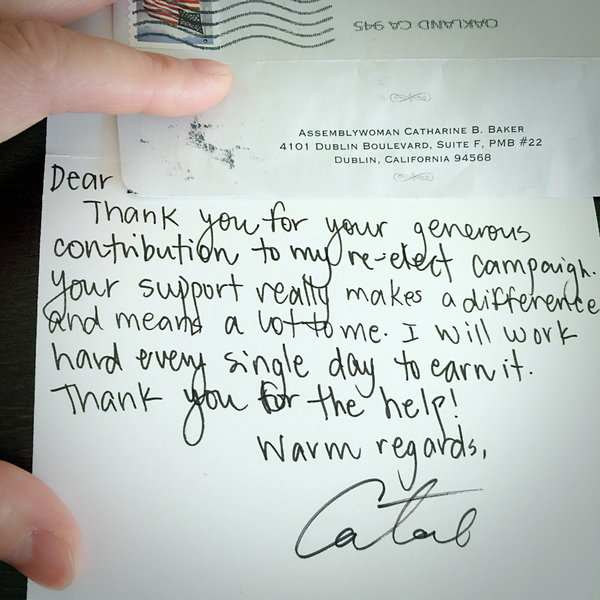 OAKLAND CA 945
ASSEMBLYWOMAN CATHARINE B. BAKER
4101 DUBLIN BOULEVARD, SUITE F, PMB #22
DUBLIN, CALIFORNIA 94568
Dear
Thank you for your generous
contribution to my re-elect campaign.
Your support really makes a difference
and means a lot to me. I will work
hard every single day to earn it.
Thank you for the help!
Warm regards,